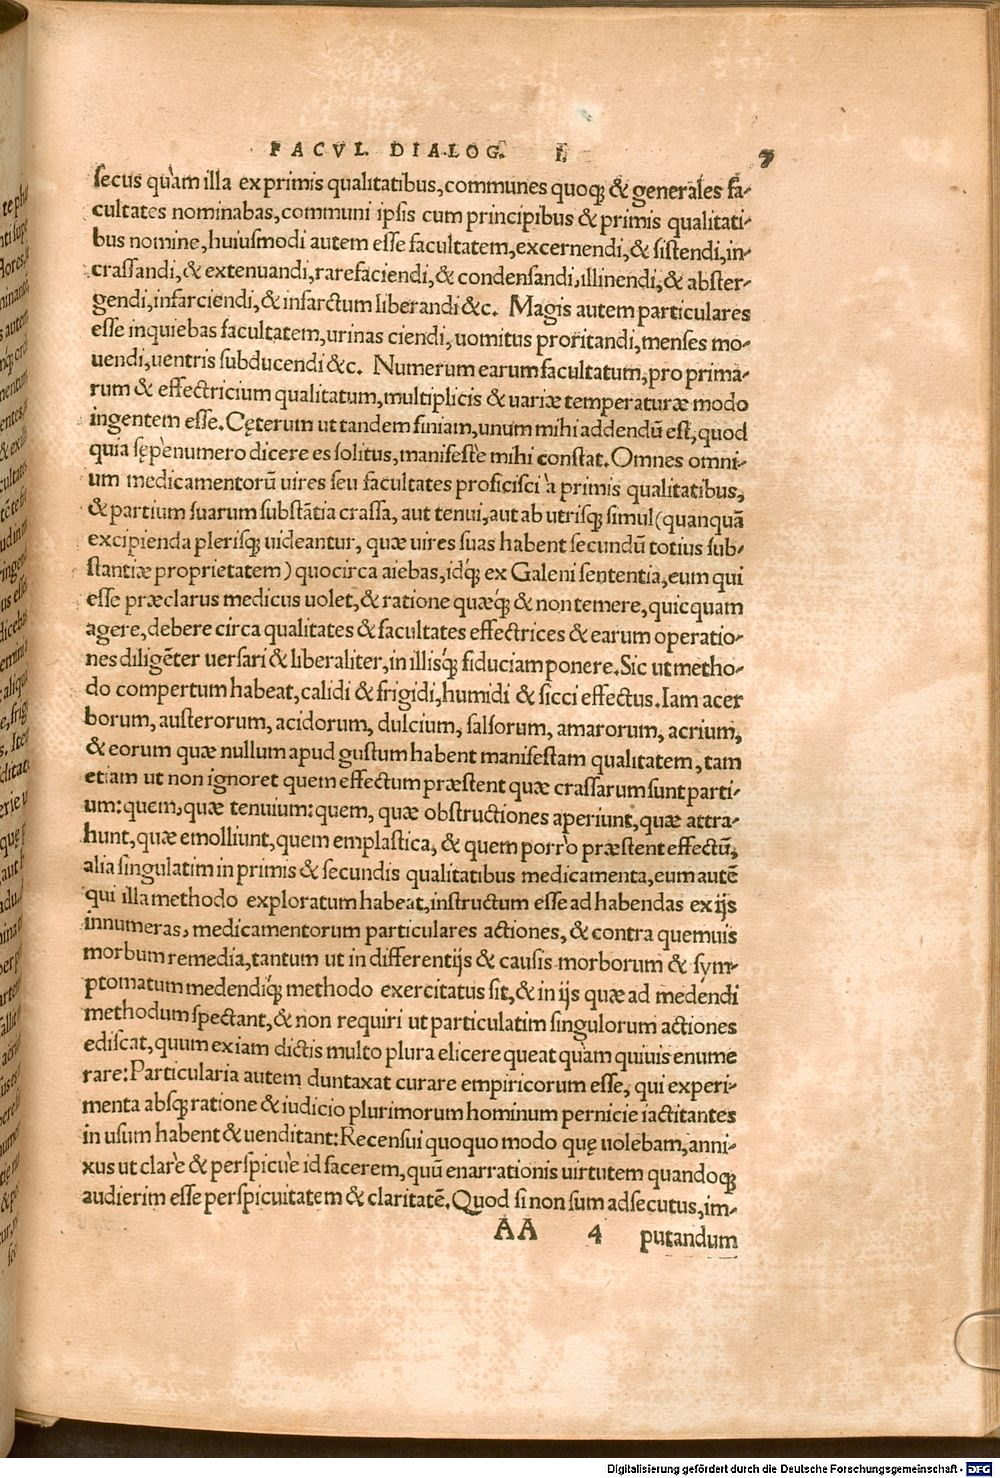 FACVL. DIALOG. I. 7
secus quàm illa ex primis qualitatibus, communes quoq; & generales fa-
cultates nominabas, communi ipsis cum principibus & primis qualitati-
bus nomine, huiusmodi autem esse facultatem, excernendi, & sistendi, in-
crassandi, & extenuandi, rarefaciendi, & condensandi, illinendi, & abster-
gendi, infarciendi, & infarctum liberandi &c. Magis autem particulares
esse inquiebas facultatem, urinas ciendi, uomitus proritandi, menses mo-
uendi, uentris subducendi &c. Numerum earum facultatum, pro prima-
rum & effectricium qualitatum, multiplicis & uariæ temperaturæ modo
ingentem esse. Cęterum ut tandem finiam, unum mihi addendū est, quod
quia sępènumero dicere es solitus, manifestè mihi constat. Omnes omni-
um medicamentorū uires seu facultates proficisci à primis qualitatibus,
& partium suarum substātia crassa, aut tenui, aut ab utrisq; simul (quanquā
excipienda plerisq; uideantur, quæ uires suas habent secundū totius sub-
stantiæ proprietatem) quocirca aiebas, idq́; ex Galeni sententia, eum qui
esse præclarus medicus uolet, & ratione quæq́; & non temere, quicquam
agere, debere circa qualitates & facultates effectrices & earum operatio-
nes diligēter uersari & liberaliter, in illisq́; fiduciam ponere. Sic ut metho-
do compertum habeat, calidi & frigidi, humidi & sicci effectus. Iam acer
borum, austerorum, acidorum, dulcium, salsorum, amarorum, acrium,
& eorum quæ nullum apud gustum habent manifestam qualitatem, tam
etiam ut non ignoret quem effectum præstent quæ crassarum sunt parti-
um: quem, quæ tenuium: quem, quæ obstructiones aperiunt, quæ attra-
hunt, quæ emolliunt, quem emplastica, & quem porrò præstent effectū,
alia singulatim in primis & secundis qualitatibus medicamenta, eum autē
qui illa methodo exploratum habeat, instructum esse ad habendas ex ijs
innumeras, medicamentorum particulares actiones, & contra quemuis
morbum remedia, tantum ut in differentijs & causis morborum & sym-
ptomatum medendiq́; methodo exercitatus sit, & in ijs quæ ad medendi
methodum spectant, & non requiri ut particulatim singulorum actiones
ediscat, quum ex iam dictis multo plura elicere queat quàm quiuis enume
rare: Particularia autem duntaxat curare empiricorum esse, qui experi-
menta absq; ratione & iudicio plurimorum hominum pernicie iactitantes
in usum habent & uenditant: Recensui quoquo modo quę uolebam, anni-
xus ut clarè & perspicuè id facerem, quū enarrationis uirtutem quandoq;
audierim esse perspicuitatem & claritatē. Quod si non sum adsecutus, im-
AA 4 putandum
Digitalisierung gefördert durch die Deutsche Forschungsgemeinschaft - DFG